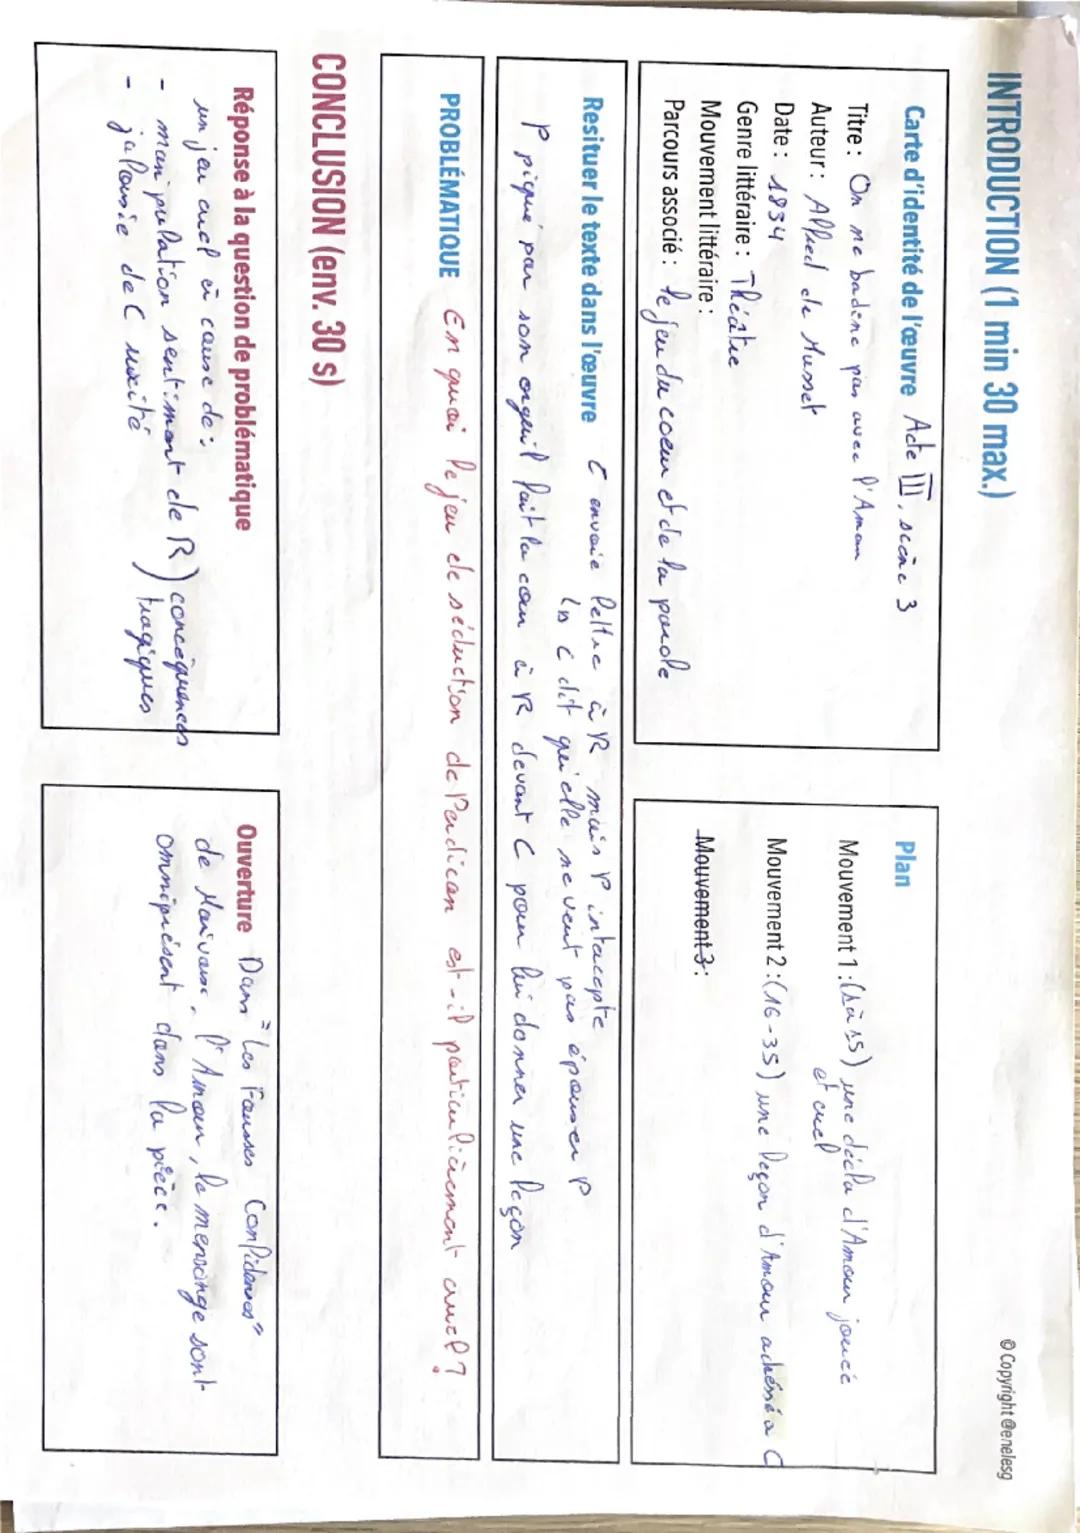 INTRODUCTION (1 min 30 max.)
© Copyright @enelesg
Carte d'identité de l'œuvre Acte III, scène 3
Titre : On ne badine pas avec l'Amour
Auteur : Alfred de Musset
Date : 1834
Genre littéraire : Théâtre
Mouvement littéraire :
Parcours associé : le jeu du coeur et de la parole
Plan
Mouvement 1 : (1à 15) une décla d'Amour jouée
et cruel
Mouvement 2 : (16-35) une leçon d'Amour adressé à C
Mouvement 3 :
Resituer le texte dans l'œuvre C envoie lettre à R mais P intercepte
↳ C dit qu'elle ne veut pas épouser P
P piqué par son orgeuil fait la cour à R devant C pour lui donner une leçon
PROBLÉMATIQUE En quoi le jeu de séduction de Perdican est-il particulièrement cruel ?
CONCLUSION (env. 30 s)
Réponse à la question de problématique
un jeu cruel à cause de :
- manipulation sentiment de R ) concéquences
- jalousie de C suscité ) tragiques
Ouverture Dans "Les Fausses Confidences"
de Marivaux, l'Amour, le mensonge sont
omniprésent dans la pièce.